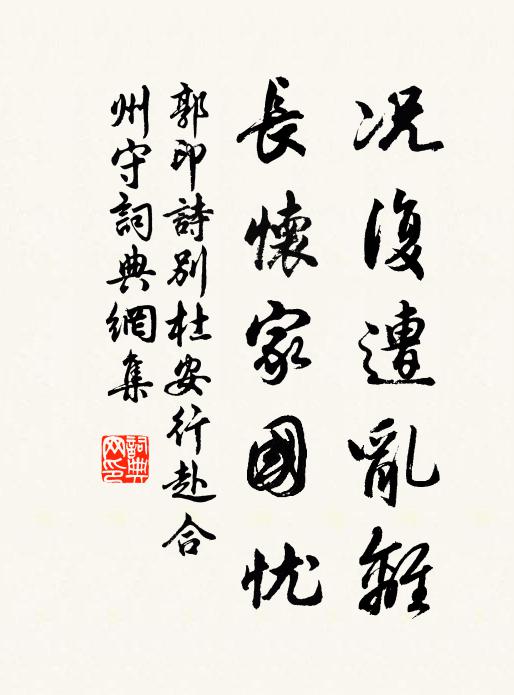 況復遭亂離
長懷家國忧
郭印詩別杜安行赴合
州守詞典網集
詞典网印